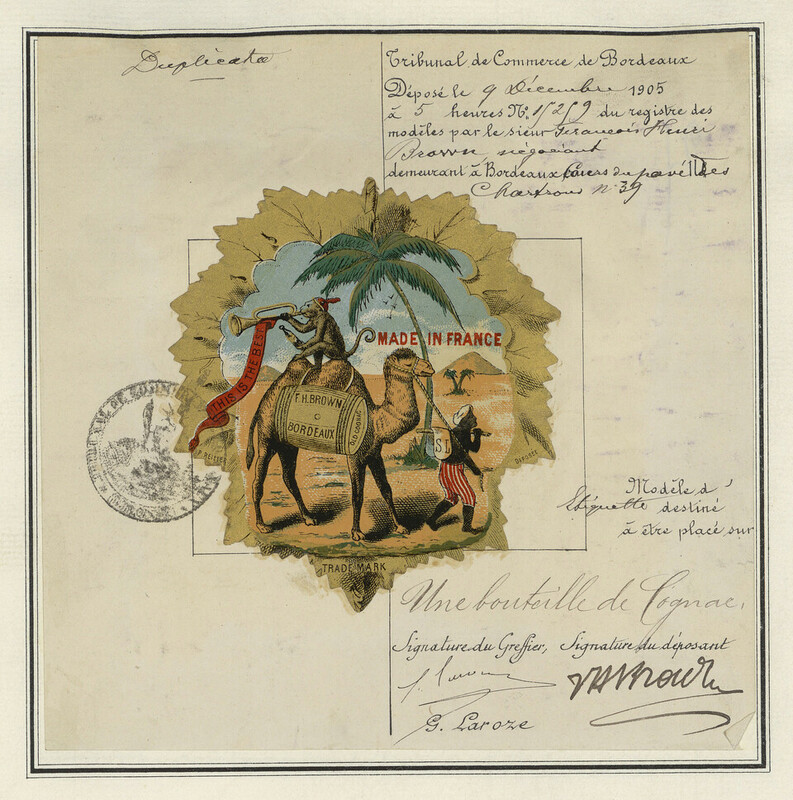 Duplicata
Tribunal de Commerce de Bordeaux
Déposé le 9 Décembre 1905
à 5 heures No. 1529 du registre des
modèles par le sieur François Henri
Brown négociant
demeurant à Bordeaux Cours du pavé des
Chartrons n° 39
MADE IN FRANCE
THIS IS THE BEST
F.H. BROWN
BORDEAUX
OLD COGNAC
S.L
DÉPOSÉE
TRADE MARK
Modèle d'
Etiquette destiné
à être placé sur
Une bouteille de Cognac.
Signature du Greffier, Signature du déposant
G. Laroze